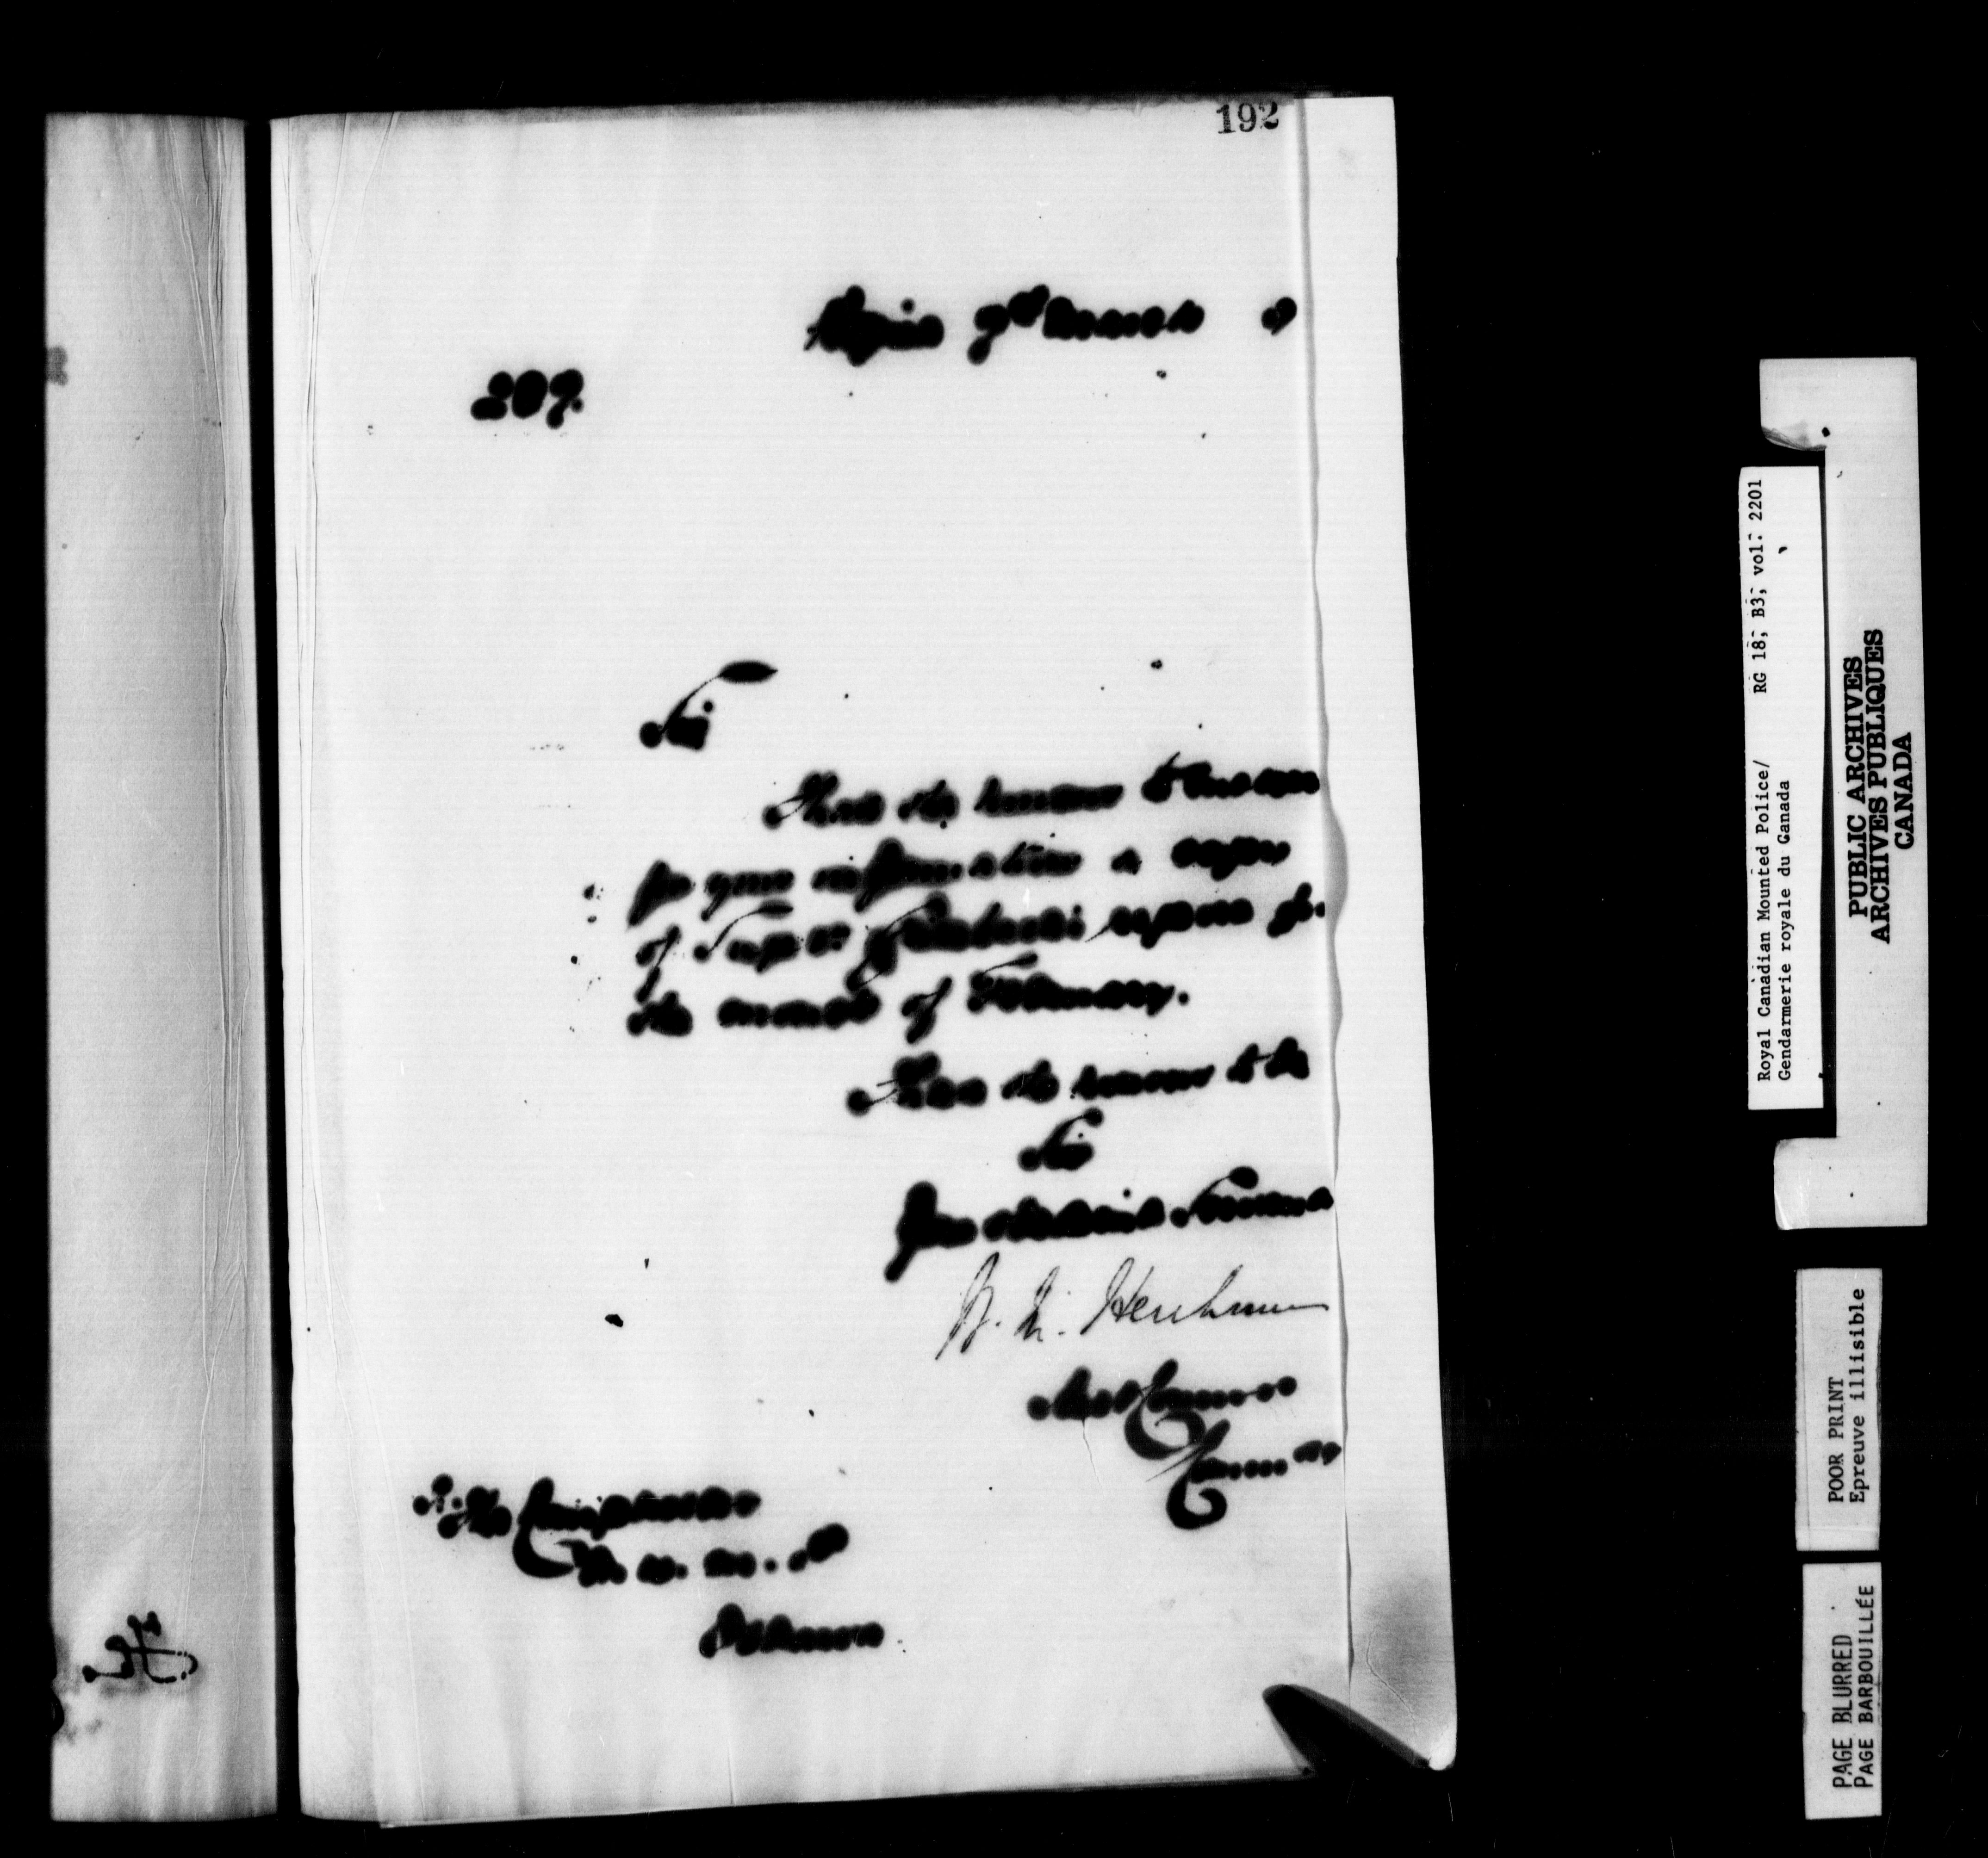 192
Regina 9th March 9
209.
Sir
I have the honour to enclose
for your information a copy
of Supt report for
the month of February.
I have the honour to be
Sir
Your obedient Servant
W. M. Herchmer
Asst Commr
Commg
The Comptroller
N. W. M. P
Ottawa.
Royal Canadian Mounted Police/ RG 18, B3, vol. 2201
Gendarmerie royale du Canada
PUBLIC ARCHIVES
ARCHIVES PUBLIQUES
CANADA
POOR PRINT
Epreuve illisible
PAGE BLURRED
PAGE BARBOUILLÉE